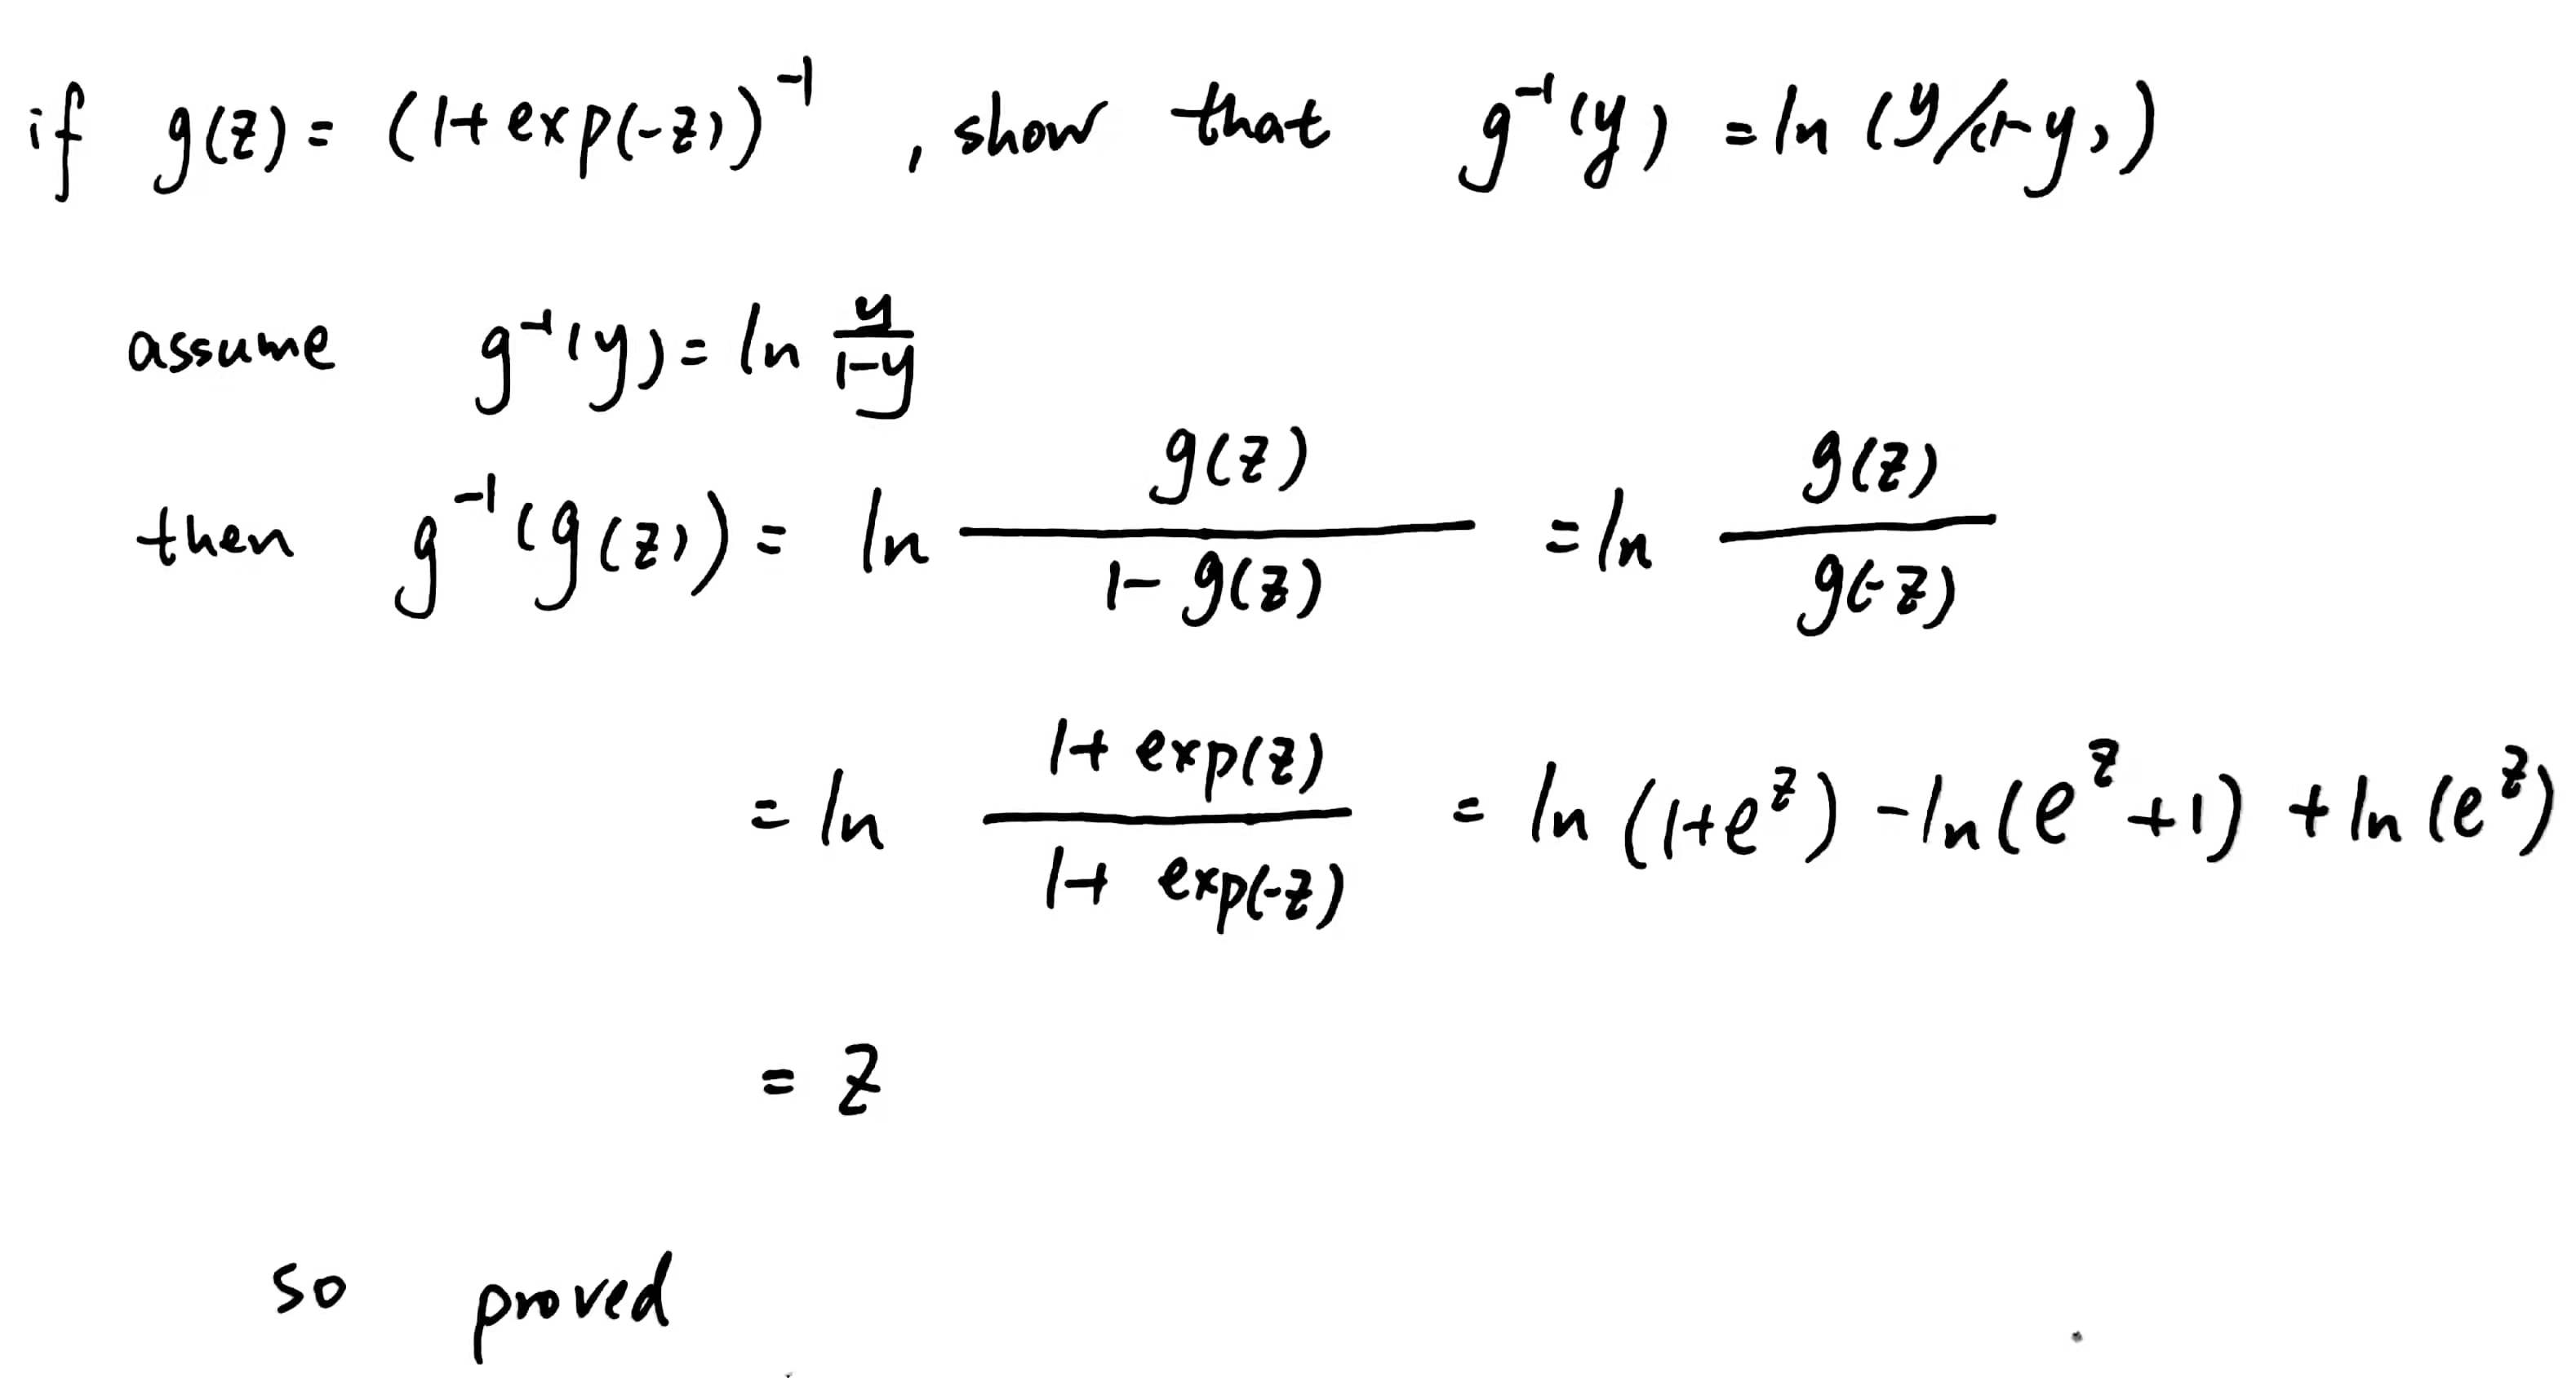 if g(z) = (1+exp(-z))^{-1} , show that g^{-1}(y) = ln (y/(1-y))
assume g^{-1}(y) = ln \frac{y}{1-y}
then g^{-1}(g(z)) = ln \frac{g(z)}{1-g(z)} = ln \frac{g(z)}{g(-z)}
= ln \frac{1+exp(z)}{1+exp(-z)} = ln (1+e^z) - ln(e^z+1) + ln(e^z)
= z
so proved